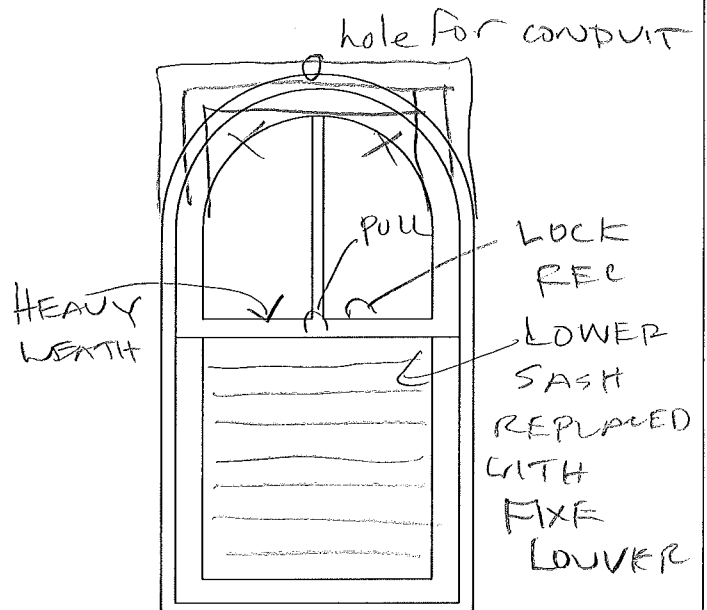 hole for CONDUIT
PULL
LOCK
REC
HEAVY
WEATH
LOWER
SASH
REPLACED
WITH
FIXE
LOUVER